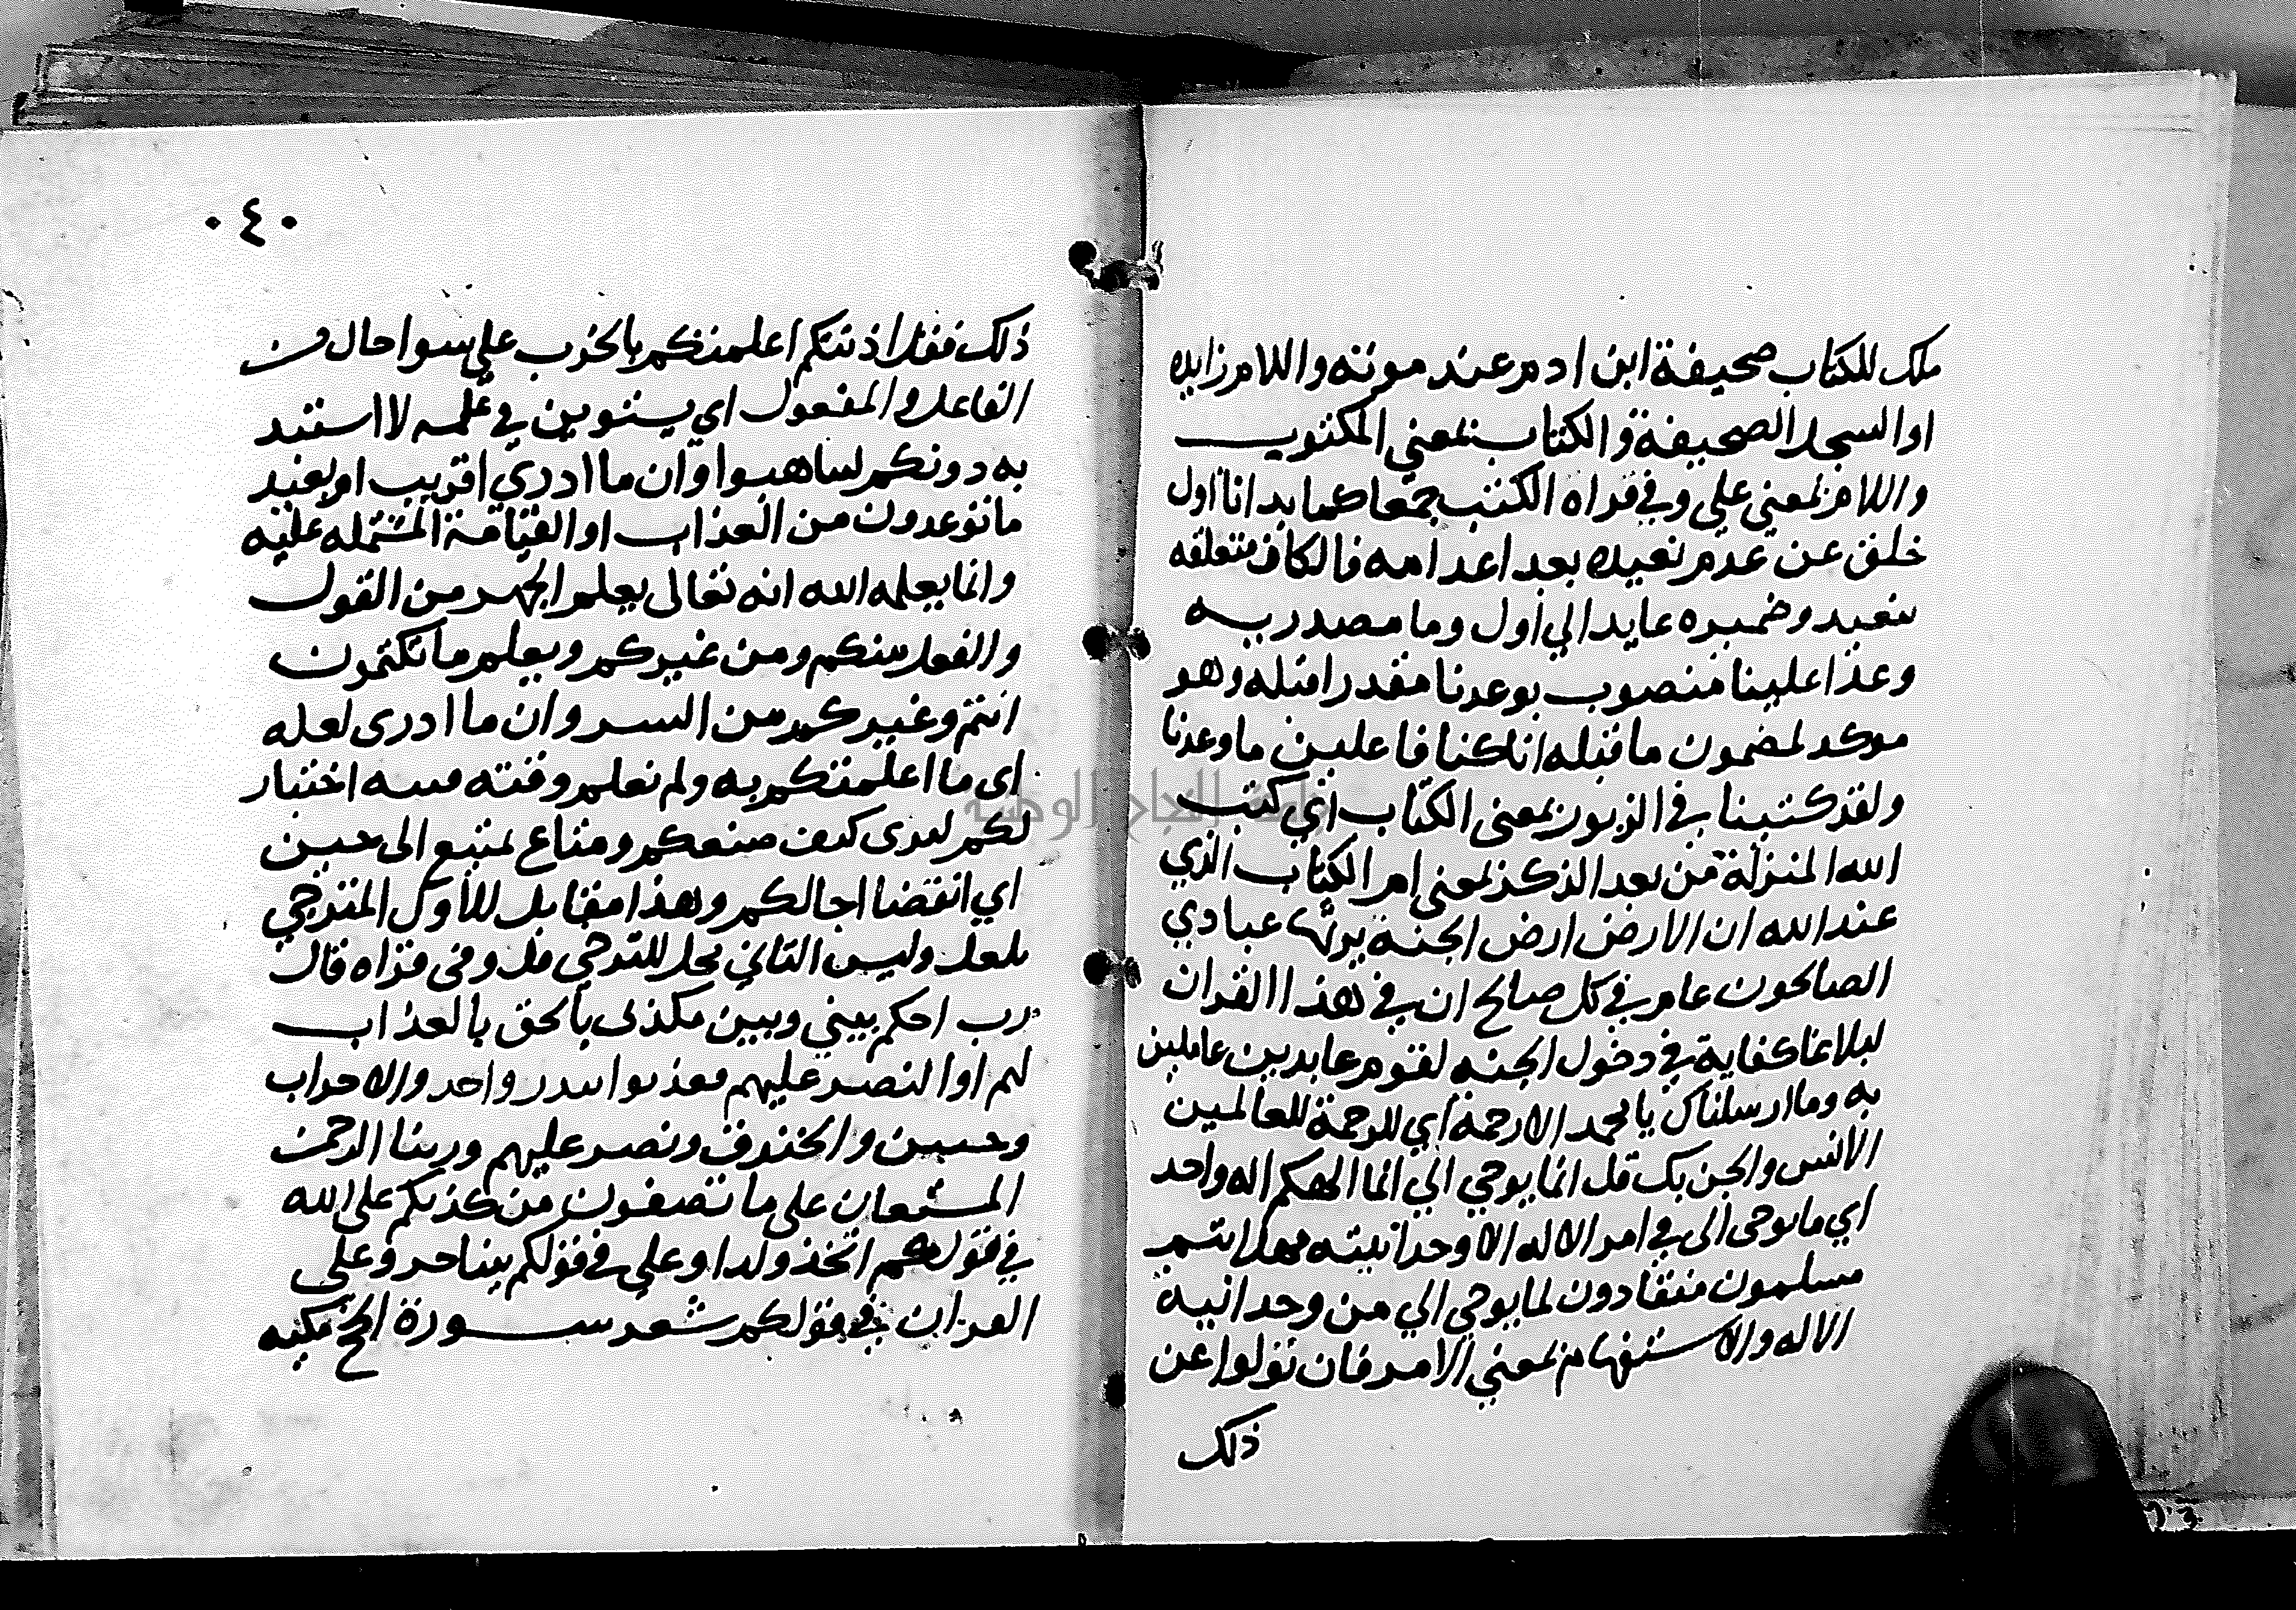 ملك للكتاب صحيفة ابن ادم عند موته واللام زايده
او السجل الصحيفة والكتاب بمعني المكتوب
واللام بمعني علي وفي قراه الكتب جمعا كما بدانا اول
خلق عن عدم نعيده بعد اعدامه فالكاف متعلقه
بنعيد وضميره عايد الي اول وما مصدريه
وعدا علينا منصوب بوعدنا مقدرا قبله وهو
موكد لمضمون ما قبله انا كنا فاعلين ما وعدنا
ولقد كتبنا في الزبور بمعنى الكتاب اي كتب
الله المنزلة من بعد الذكر بمعني ام الكتاب الذي
عند الله ان الارض ارض الجنة يرثها عبادي
الصالحون عام في كل صالح ان في هذا القران
لبلاغا كفاية في دخول الجنه لقوم عابدين عاملين
به وما ارسلناك يا محمد الا رحمة اي للرحمة للعالمين
الانس والجن بك قل انما يوحي الي انما الهكم اله واحد
اي ما يوحى الى في امر الاله الا وحدانيته فهل انتم
مسلمون منقادون لما يوحي الي من وحدانية
الاله والاستفهام بمعني الامر فان تولوا عن
ذلك
٠٤٠
ذلك فقل اذنتكم اعلمتكم بالحرب علي سوا حال من
الفاعل والمفعول اي يستوين في علمه لا استبد
به دونكم لتاهبوا وان ما ادري اقريب ام بعيد
ما توعدون من العذاب او القيامة المشتمله عليه
وانما يعلمه الله انه تعالى يعلم الجهر من القول
والفعل منكم ومن غيركم ويعلم ما تكتمون
انتم وغيركم من السر وان ما ادرى لعله
اى ما اعلمتكم به ولم نعلم وقته فتنه اختبار
لكم ليرى كيف صنعكم ومتاع تمتع الى حين
اي انقضا اجالكم وهذا مقابل للاول المترجي
بلعل وليس الثاني محل للترجي قل وفى قراه قال
رب احكم بيني وبين مكذبي بالحق بالعذاب
لهم او النصر عليهم فعذبوا ببدر واحد والاحزاب
وحنين والخندق ونصر عليهم وربنا الرحمن
المستعان على ما تصفون من كذبكم على الله
في قولكم اتخذ ولدا وعلي في قولكم ساحر وعلى
القران في قولكم شعر سورة الحج مكيه
جامعة النجاح الوطنية